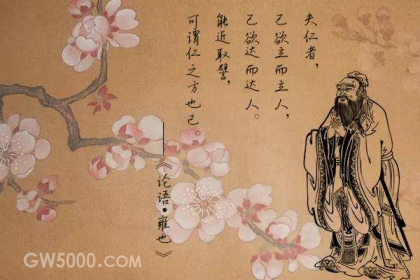 夫仁者，
己欲立而立人，
己欲达而达人。
能近取譬，
可谓仁之方也已。
《论语·雍也》
GW5000.COM